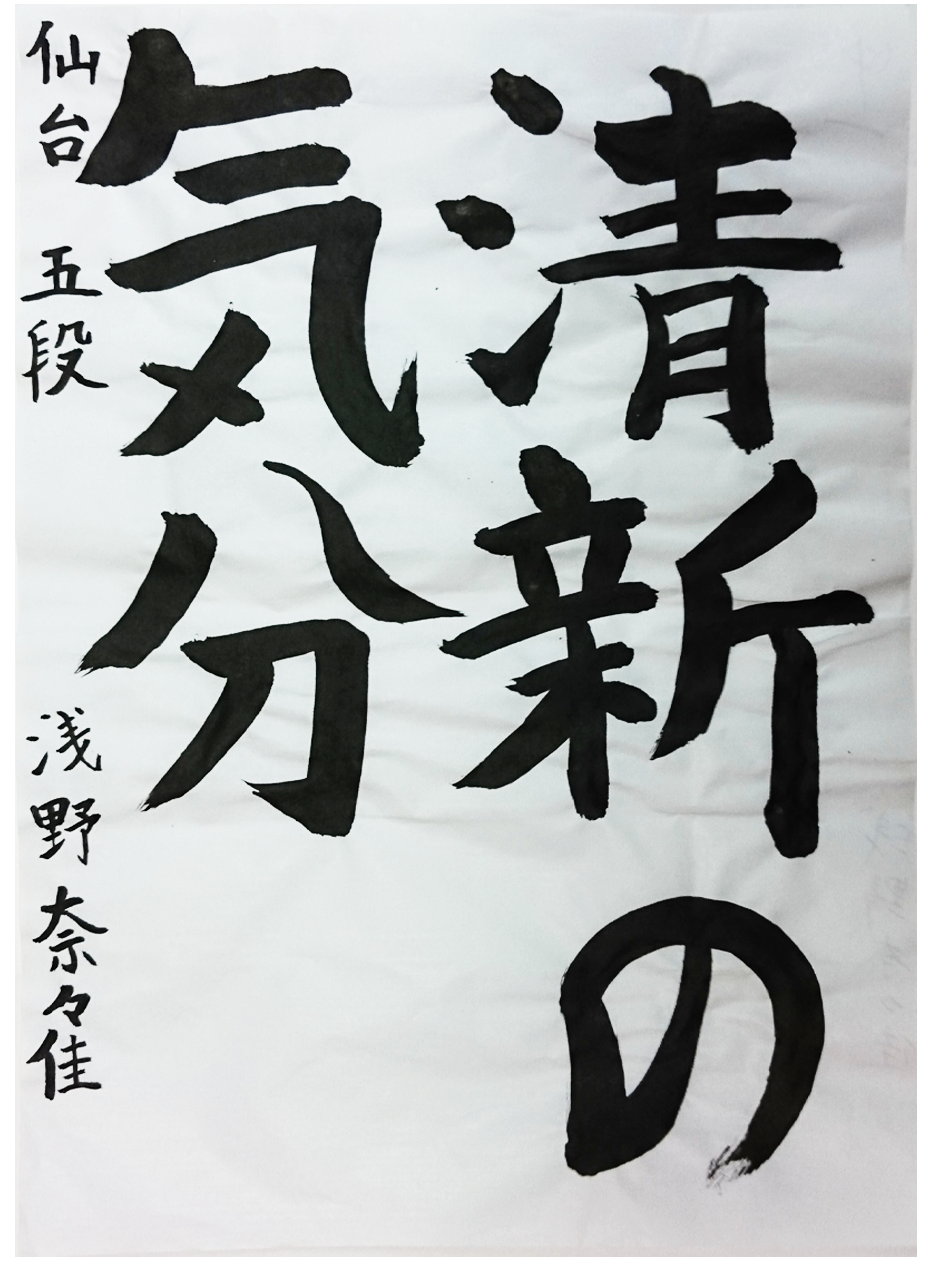 清新の
気分
仙台 五段 浅野奈々佳